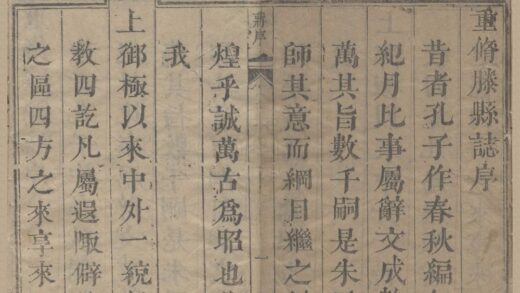 重脩滕縣誌序
昔者孔子作春秋編
紀月比事屬辭文成
萬其旨數千嗣是朱
師其意而綱目繼之
序 一
煌乎誠萬古爲昭也
我
上御極以來中外一統
教四訖凡屬遐陬僻
之區四方之來享來